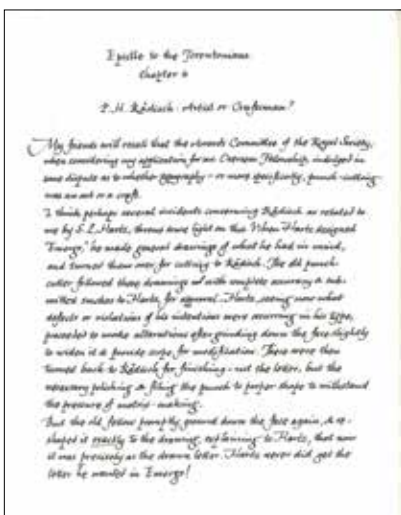 Epistle to the Torontonians
Chapter 6
P. H. Rädisch: Artist or Craftsman?
My friends will recall that the Awards Committee of the Royal Society,
when considering my application for an Overseas Fellowship, indulged in
some dispute as to whether – or more specifically, punch-cutting
was an art or a craft.
I think perhaps several incidents concerning Rädisch as related to
me by S. L. Hartz, throws some light on this. When Hartz designed
"Emergo," he made general drawings of what he had in mind,
and turned them over for cutting to Rädisch. The old punch
cutter followed these drawings with complete accuracy & sub-
mitted smokes to Hartz, for approval. Hartz, seeing now what
defects or violations of his intentions were occurring in his type,
proceeded to make alterations after grinding down the face slightly
to widen it & provide scope for modification. These were then
turned back to Rädisch for finishing – not the letter, but the
necessary polishing & filing the punch to proper shape to withstand
the pressure of matrix-making.
But the old fellow promptly ground down the face again, & re-
shaped it exactly to the drawing, explaining to Hartz, that now
it was precisely as the drawn letter. Hartz never did get the
letter he wanted in Emergo!